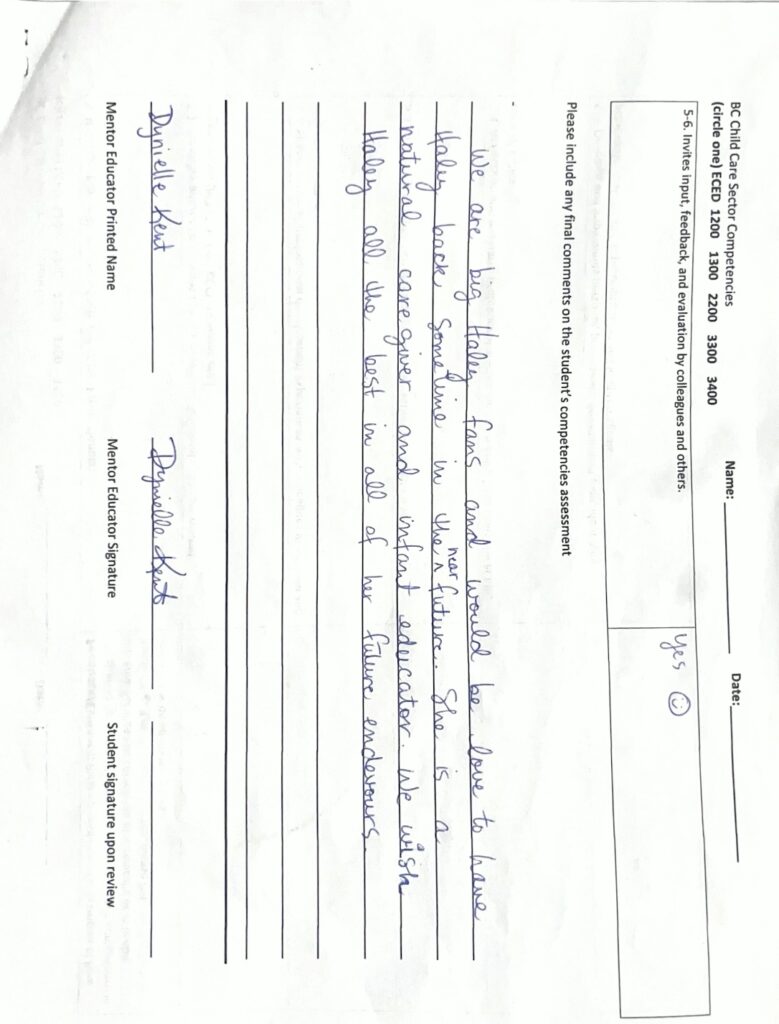 BC Child Care Sector Competencies
(circle one) ECED 1200 1300 2200 3300 3400 Name: Date:
5-6. Invites input, feedback, and evaluation by colleagues and others. Yes ☺
Please include any final comments on the student's competencies assessment
We are big Haley fans and would be love to have
Haley back sometime in the ^ near future. She is a
natural care giver and infant educator. We wish
Haley all the best in all of her future endevours.
Dynielle Kent Dynielle Kent
Mentor Educator Printed Name Mentor Educator Signature Student signature upon review